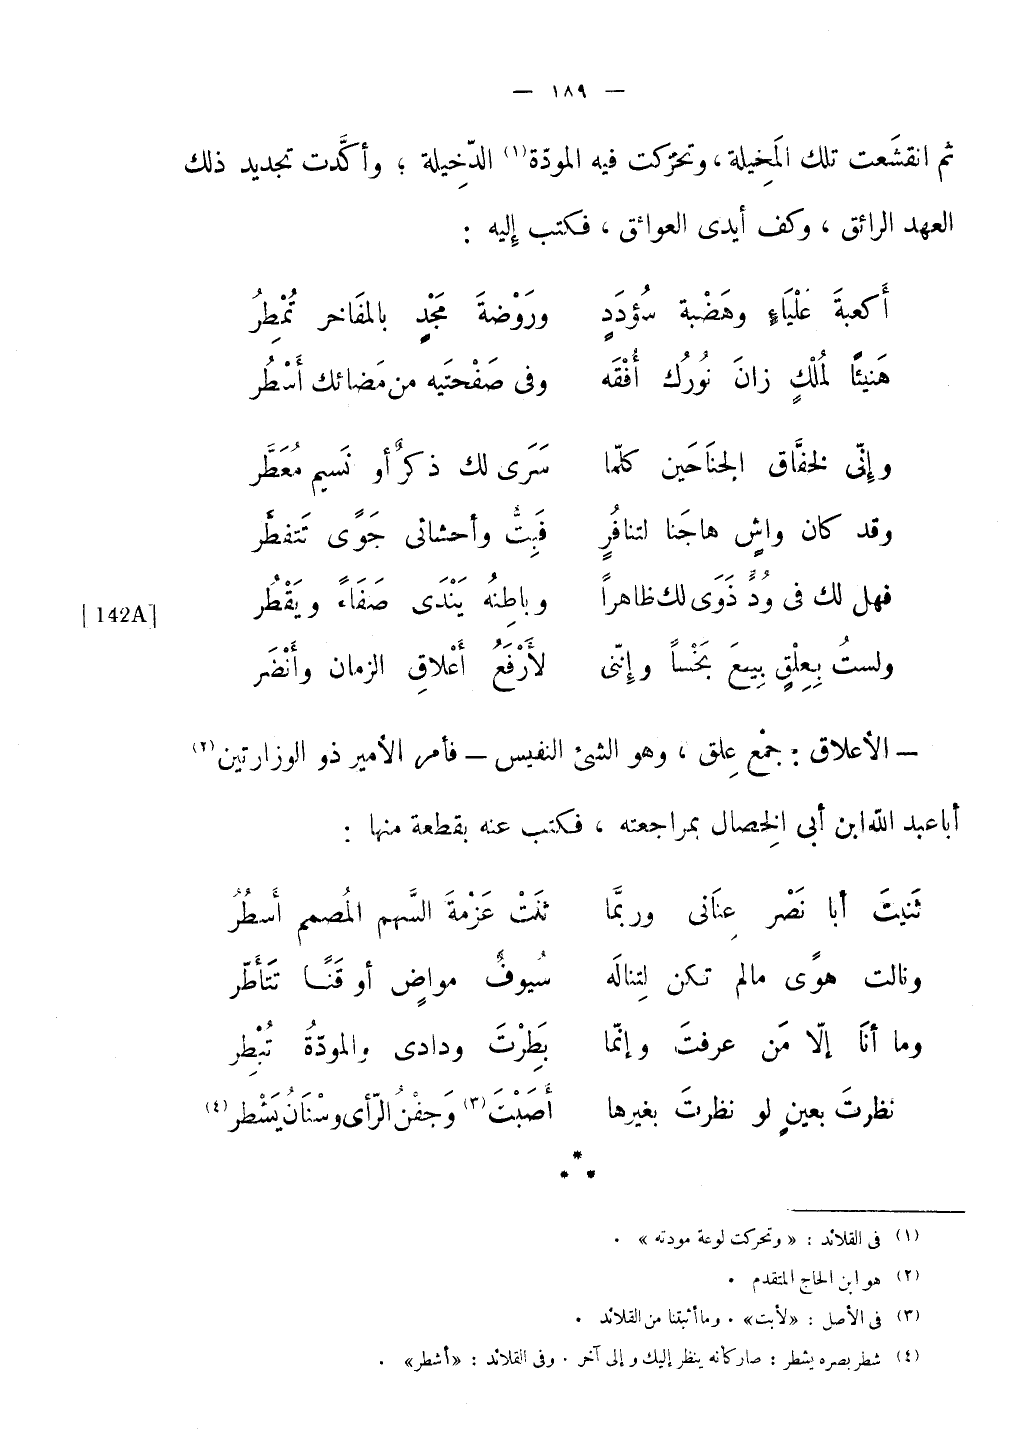 — ١٨٩ —
ثم انقشَعت تلك المَخِيلة ، وتحرّكت فيه المودّة(١) الدّخِيلة ؛ وأكَّدت تجديد ذلك
العهد الرائق ، وكف أيدى العوائق ، فكتب إِليه :
أَكعبةَ عُلْيَاءٍ وهَضْبة سُؤدَدٍ ورَوْضةَ مَجْدٍ بالمفَاخر تُمْطِرُ
هَنيئًا لمُلْكٍ زانَ نُورُك أُفْقَه وفى صَفْحتَيه من مَضائك أَسْطُر
وإِنّى لخفَّاق الجناحَين كلمّا سَرَى لك ذكرٌ أو نَسيم مُعَطَّر
وقد كان واشٍ هاجَنا لتنافُرٍ فَبِتُّ وأحشائى جَوًى تَتفطَّر
فهل لك فى وُدٍّ ذَوَى لك ظاهراً وباطِنهُ يَنْدَى صَفَاءً ويَقْطُر
[142A]
ولستُ بِعِلْقٍ بِيعَ بَخْساً وإِنّنى لأَرْفَعُ أَعْلاقِ الزمان وأَنْضَر
— الأعلاق : جمْع عِلق ، وهو الشئ النفيس — فأمر الأمير ذو الوزارتين(٢)
أباعبد الله ابن أبى الخِصال بمراجعته ، فكتب عنه بقطعة منها :
ثَنيتَ أبا نَصْر عِنَانى وربَّما ثَنَتْ عَزْمةَ السَّهم المُصمم أَسطُرُ
ونالت هوًى مالم تكن لِتنالَه سُيوفٌ مواضٍ أو قَنًا تَتَأَطّر
وما أَنَا إلّا مَن عرفتَ وإنّما بَطِرْتَ ودادى والمودّةُ تُبْطِر
نظرتَ بعينٍ لو نظرتَ بغيرها أَصَبْتَ(٣) وَجفْنُ الرّأى وسْنَانُ يَشْطر(٤)
* * *
(١) فى القلائد : « وتحركت لوعة مودته » .
(٢) هو ابن الحاج المتقدم .
(٣) فى الأصل : «لأبت» . وما أثبتنا من القلائد .
(٤) شطر بصره يشطر : صار كأنه ينظر إليك و إلى آخر . وفى القلائد : «أشطر» .